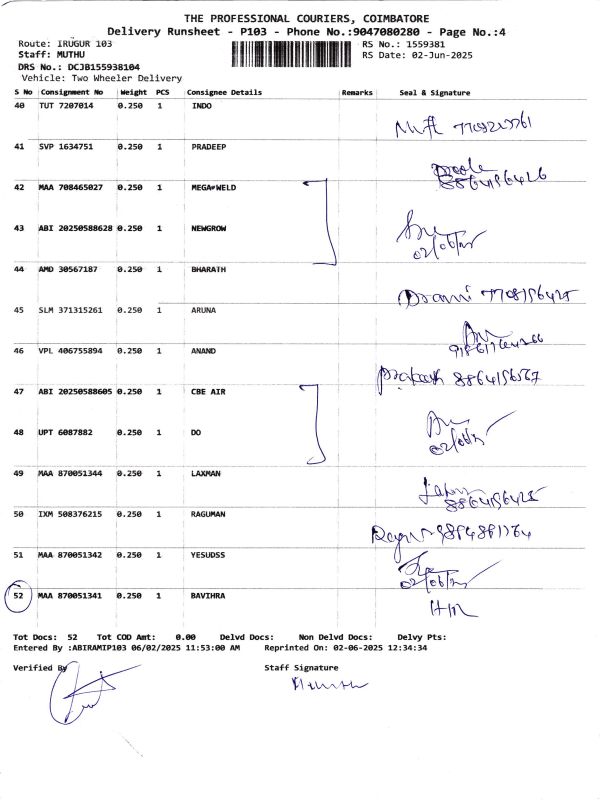 THE PROFESSIONAL COURIERS, COIMBATORE
Delivery Runsheet - P103 - Phone No.:9047080280 - Page No.:4
Route: IRUGUR 103 RS No.: 1559381
Staff: MUTHU RS Date: 02-Jun-2025
DRS No.: DCJB155938104
Vehicle: Two Wheeler Delivery
S No Consignment No Weight PCS Consignee Details Remarks Seal & Signature
40 TUT 7207014 0.250 1 INDO
41 SVP 1634751 0.250 1 PRADEEP
8864156426
42 MAA 708465027 0.250 1 MEGA*WELD
43 ABI 20250588628 0.250 1 NEWGROW
02/06/25
44 AMD 30567187 0.250 1 BHARATH
7708156425
45 SLM 371315261 0.250 1 ARUNA
46 VPL 406755894 0.250 1 ANAND
Prakash 8864156567
47 ABI 20250588605 0.250 1 CBE AIR
48 UPT 6087882 0.250 1 DO
02/06/25
49 MAA 870051344 0.250 1 LAXMAN
8864156425
50 IXM 508376215 0.250 1 RAGUMAN
51 MAA 870051342 0.250 1 YESUDSS
02/06/25
52 MAA 870051341 0.250 1 BAVIHRA
Tot Docs: 52 Tot COD Amt: 0.00 Delvd Docs: Non Delvd Docs: Delvy Pts:
Entered By :ABIRAMIP103 06/02/2025 11:53:00 AM Reprinted On: 02-06-2025 12:34:34
Verified By Staff Signature